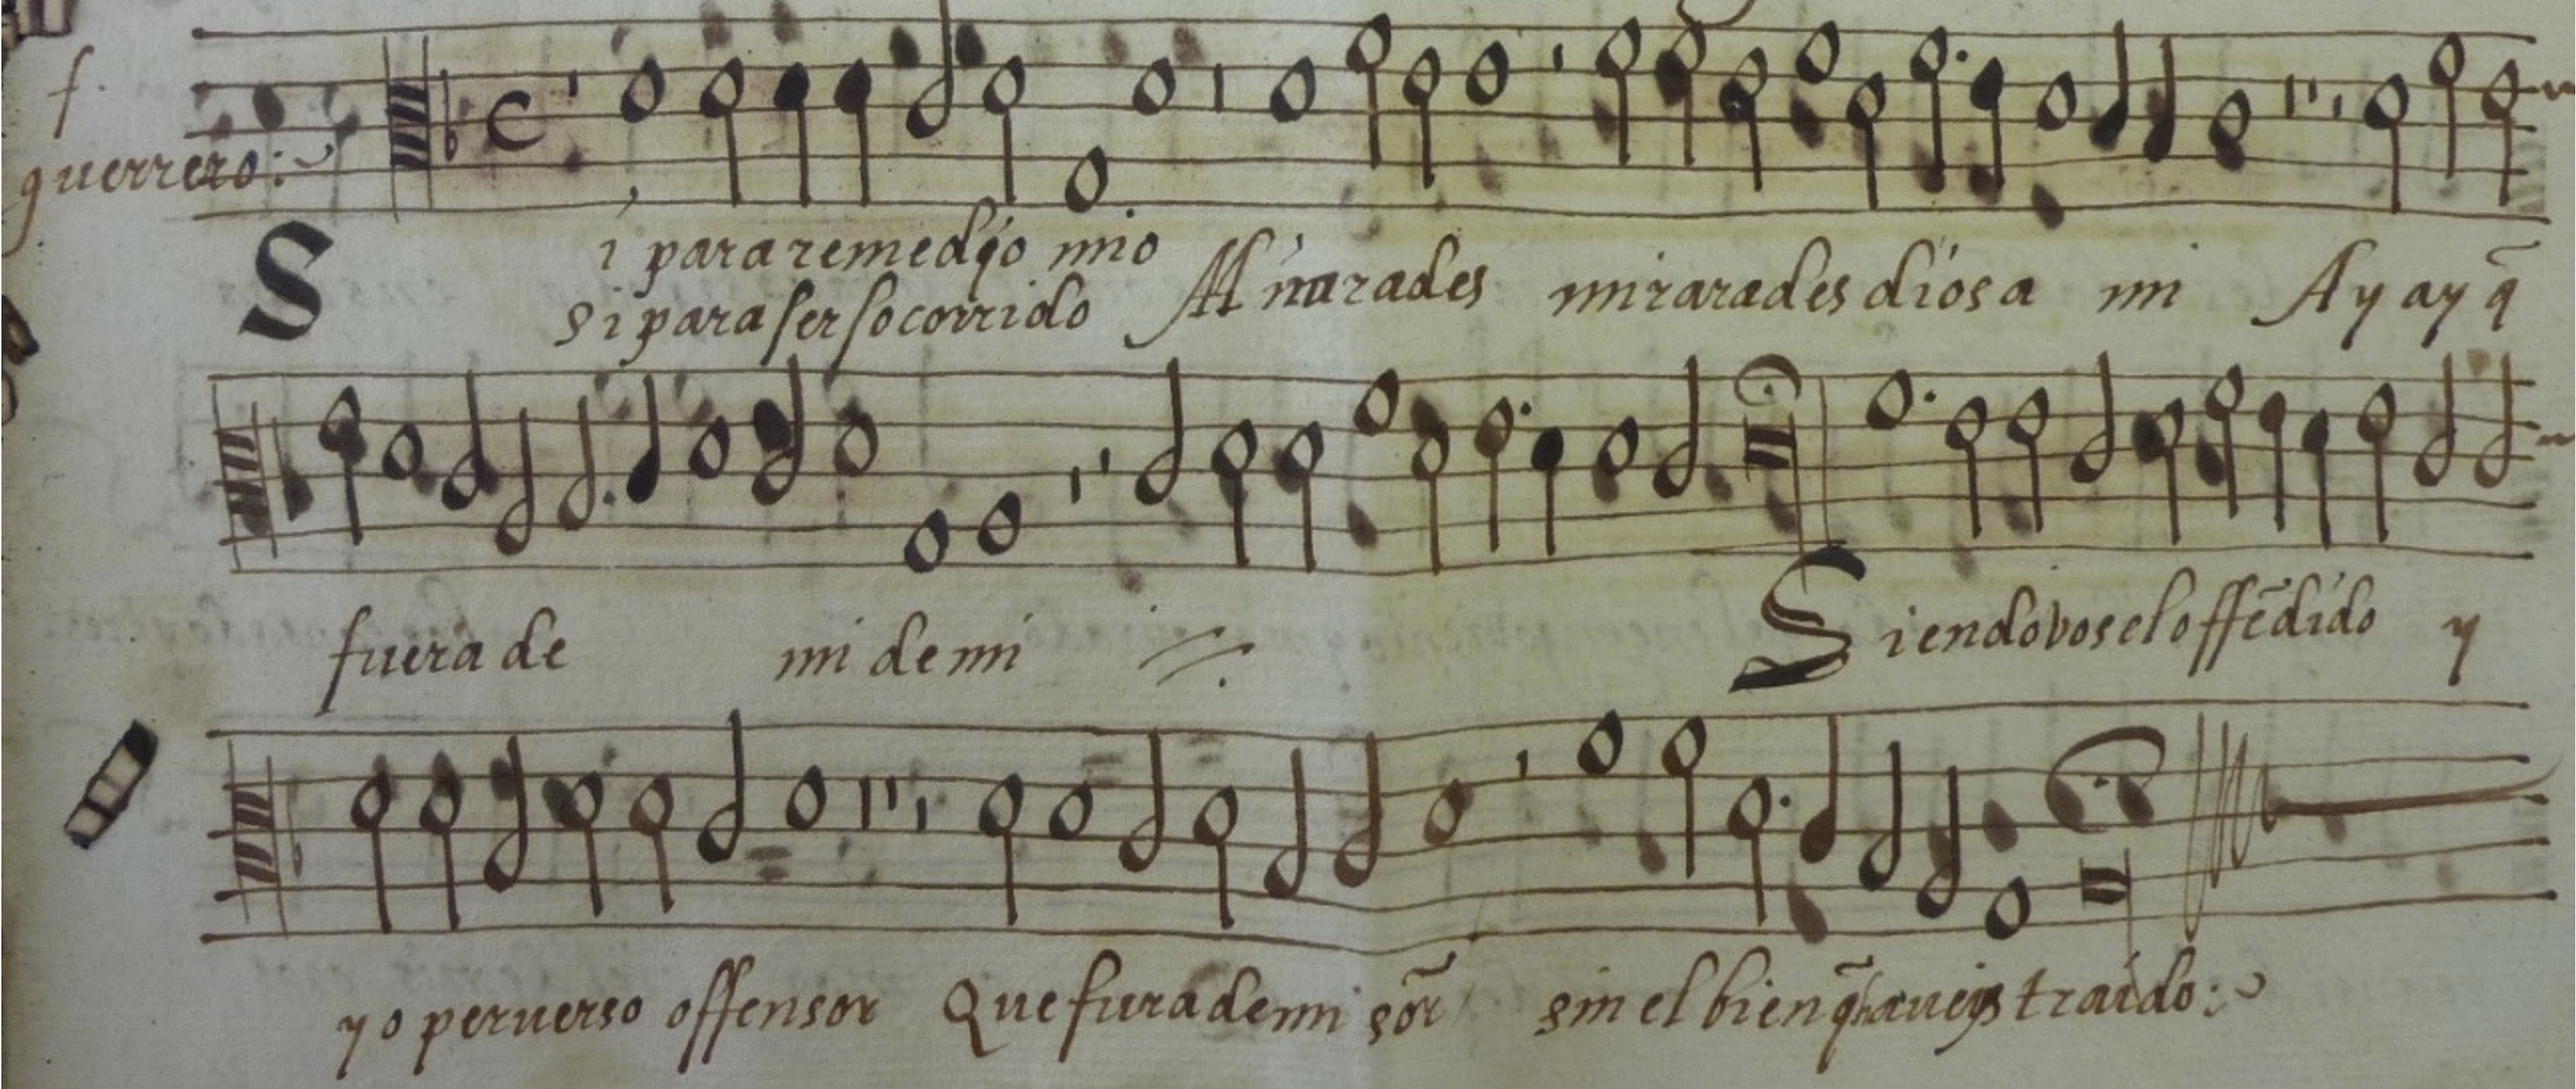 f.
guerrero:
Si para remedio mio Mirarades mirarades dios a mi Ay ay q̃
si para ser socorrido
fuera de mi de mi Siendo vos el offẽdido y
yo peruerso offensor Que fuera de mi sor̃ sin el bien q̃ haueys traido: